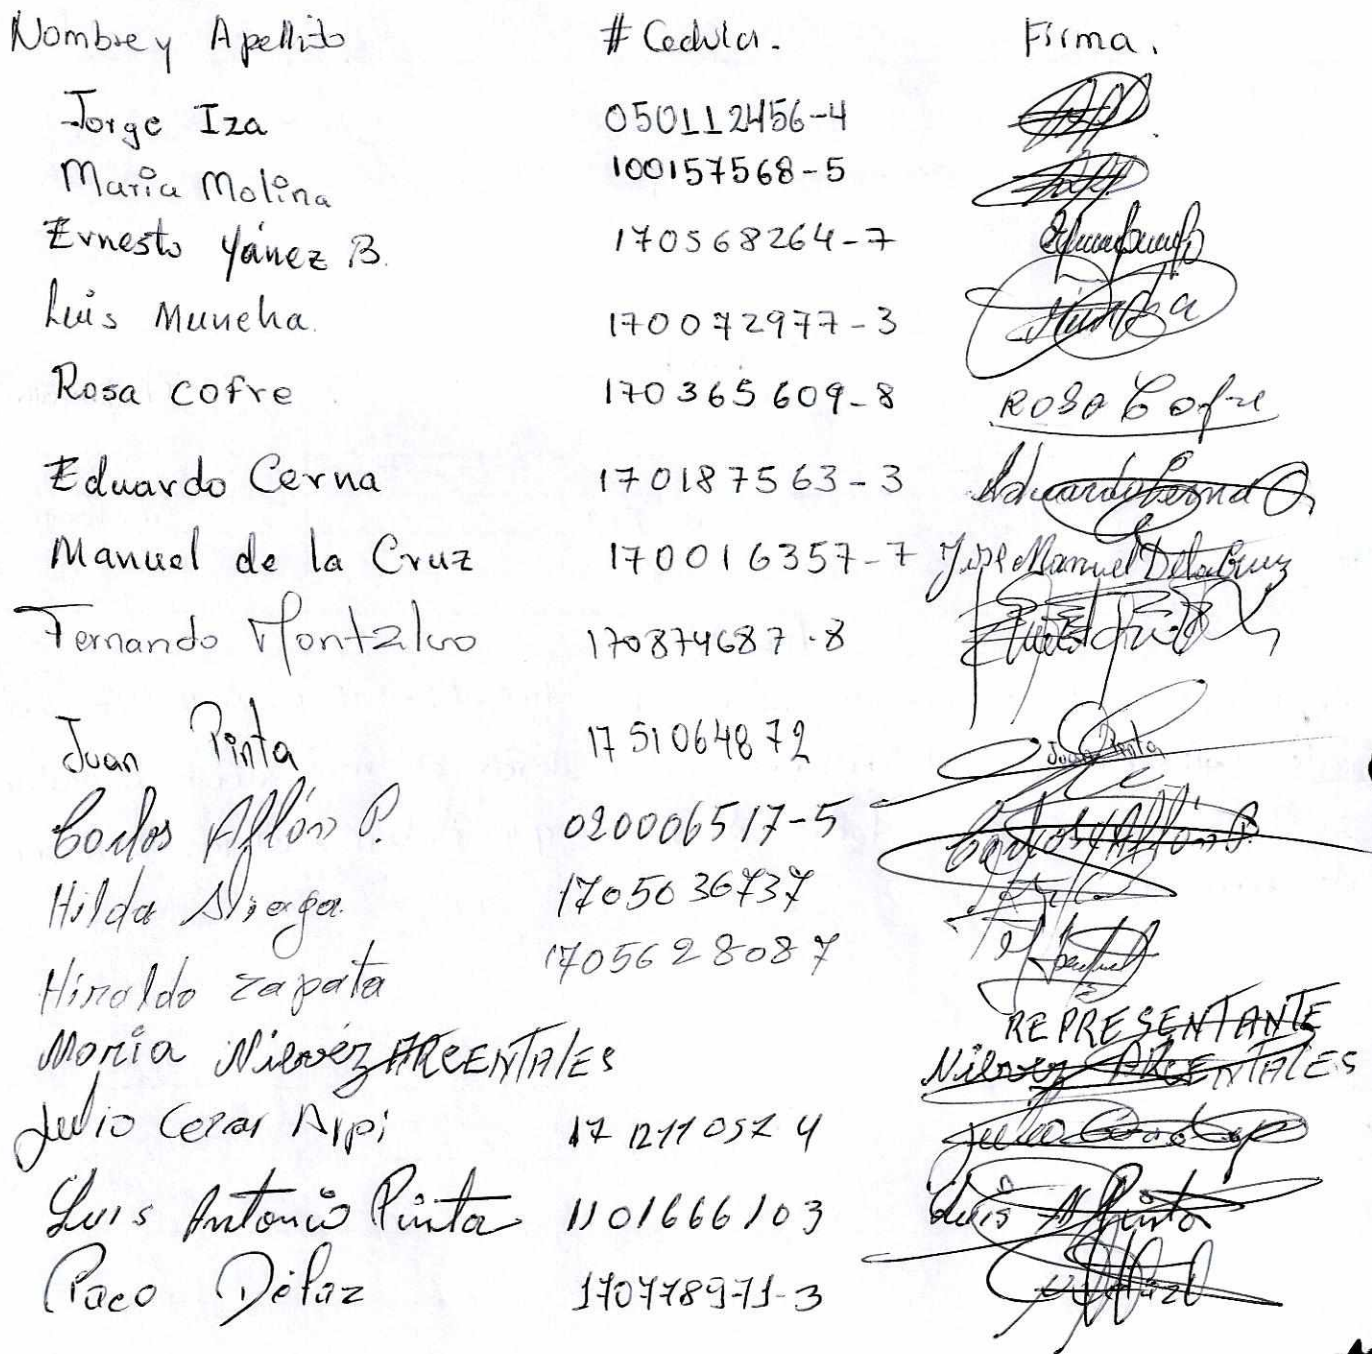 Nombre y Apellido # Cedula. Firma.
Jorge Iza 050112456-4
Maria Molina 100157568-5
Ernesto Yánez B. 170568264-7
Luis Muncha. 170072977-3
Rosa Cofre 170365609-8 Rosa Cofre
Eduardo Cerna 170187563-3 Eduardo Cerna
Manuel de la Cruz 170016357-7 José Manuel De la Cruz
Fernando Montalvo 170874687-8
Juan Pinta 1751064872 Juan Pinta
Carlos Aflón P. 020006517-5 Carlos Aflón P.
Hilda 1705036737
Hiraldo Zapata 1705628087
REPRESENTANTE
Maria Nievez ARCENTALES Nievez ARCENTALES
Julio Cezar Julio
Luis Antonio Pinta 1101666103 Luis A Pinta
Paco Délaz 170778971-3